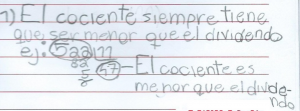 1) El cociente siempre tiene
que ser menor que el dividendo
ej: 5
El cociente es
menor que el divide-
ndo